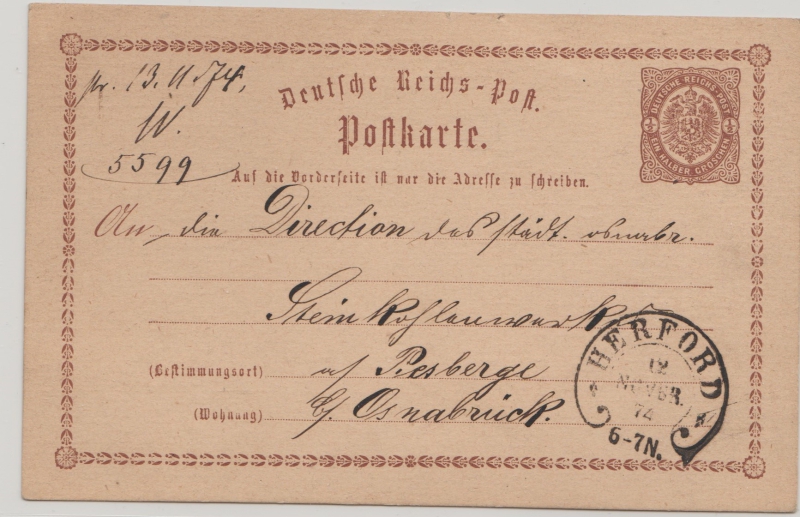 pr. 13.11.74,
W.
5599
Deutsche Reichs-Post.
Postkarte.
DEUTSCHE REICHS-POST
EIN HALBER GROSCHEN
½ ½
Auf die Vorderseite ist nur die Adresse zu schreiben.
An die Direction des städt. osnabr.
Steinkohlenwerks
a/ Piesberge
(Bestimmungsort)
b/ Osnabrück.
(Wohnung)
HERFORD
12
NOVBR.
74
6-7N.